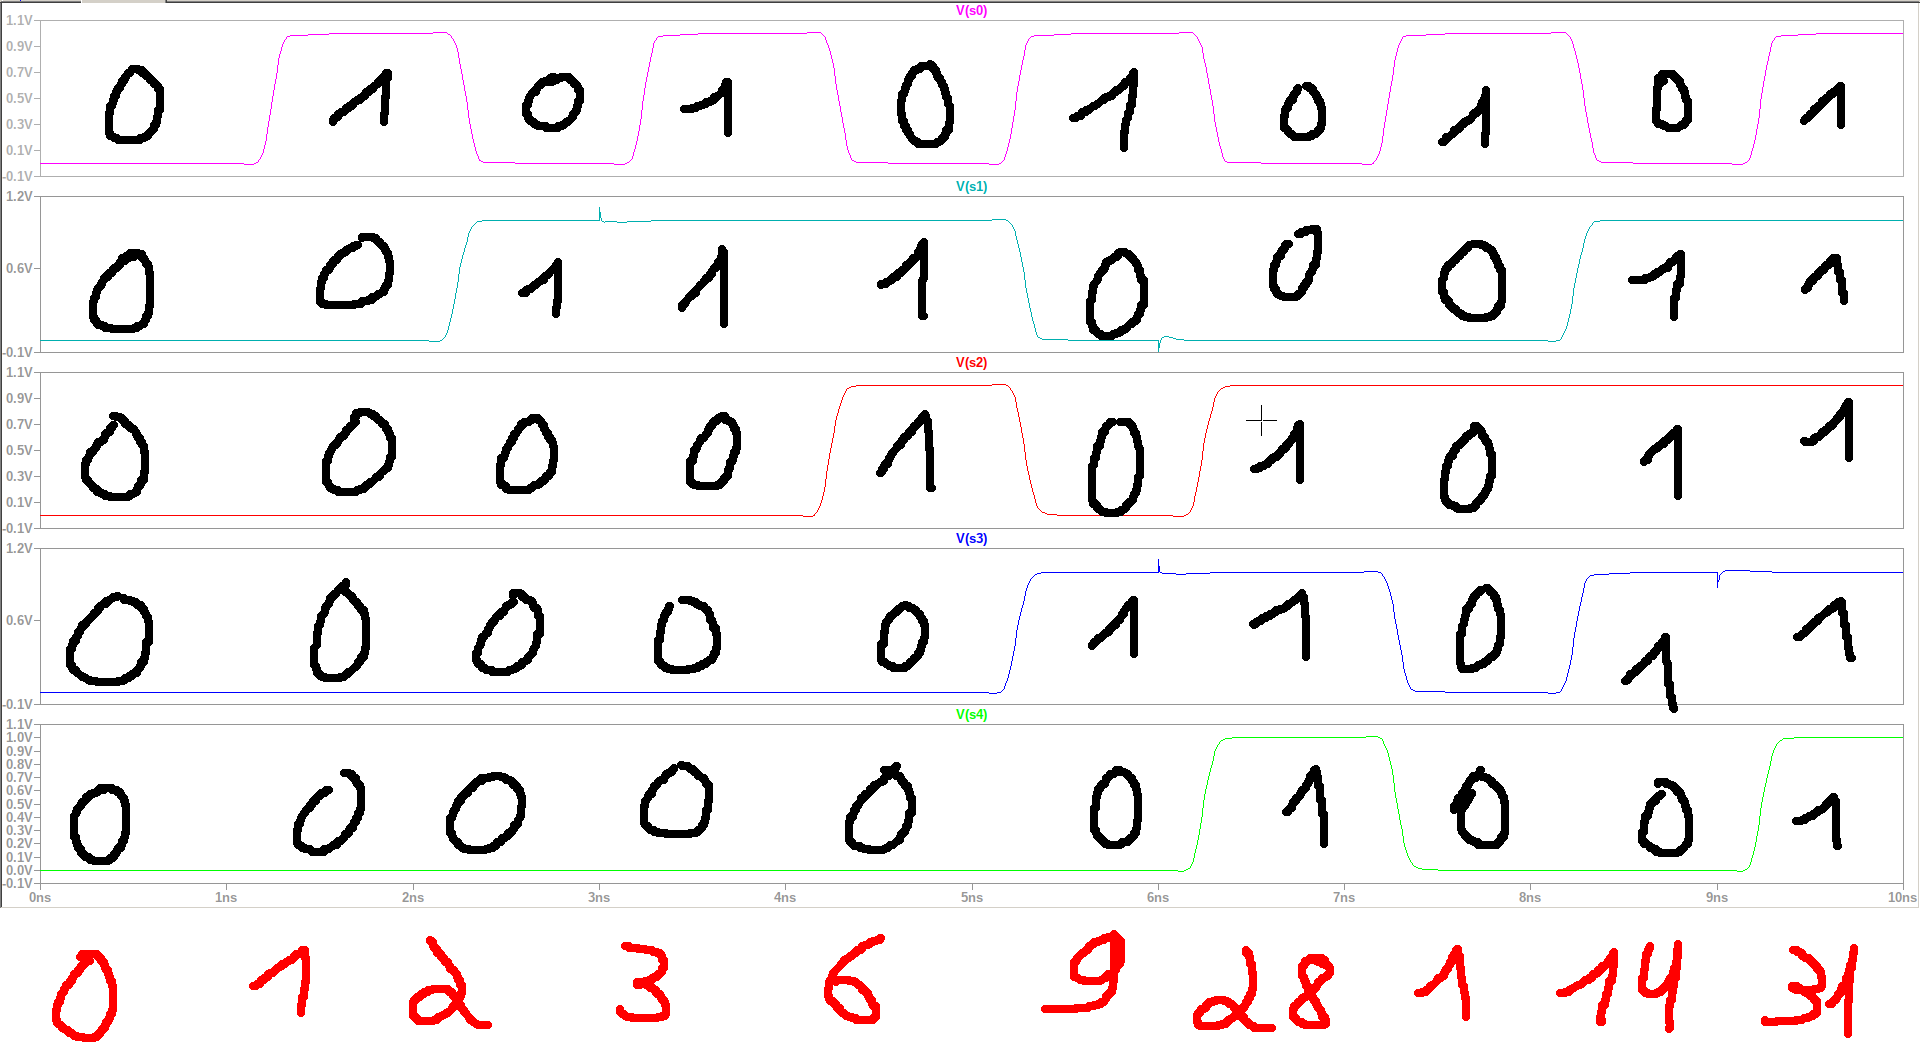 V(s0)
1.1V
0.9V
0.7V
0.5V
0.3V
0.1V
-0.1V
0 1 0 1 0 1 0 1 0 1
V(s1)
1.2V
0.6V
-0.1V
0 0 1 1 1 0 0 0 1 1
V(s2)
1.1V
0.9V
0.7V
0.5V
0.3V
0.1V
-0.1V
0 0 0 0 1 0 1 0 1 1
V(s3)
1.2V
0.6V
-0.1V
0 0 0 0 0 1 1 0 1 1
V(s4)
1.1V
1.0V
0.9V
0.8V
0.7V
0.6V
0.5V
0.4V
0.3V
0.2V
0.1V
0.0V
-0.1V
0 0 0 0 0 0 1 0 0 1
0ns 1ns 2ns 3ns 4ns 5ns 6ns 7ns 8ns 9ns 10ns
0 1 2 3 6 9 28 1 14 31